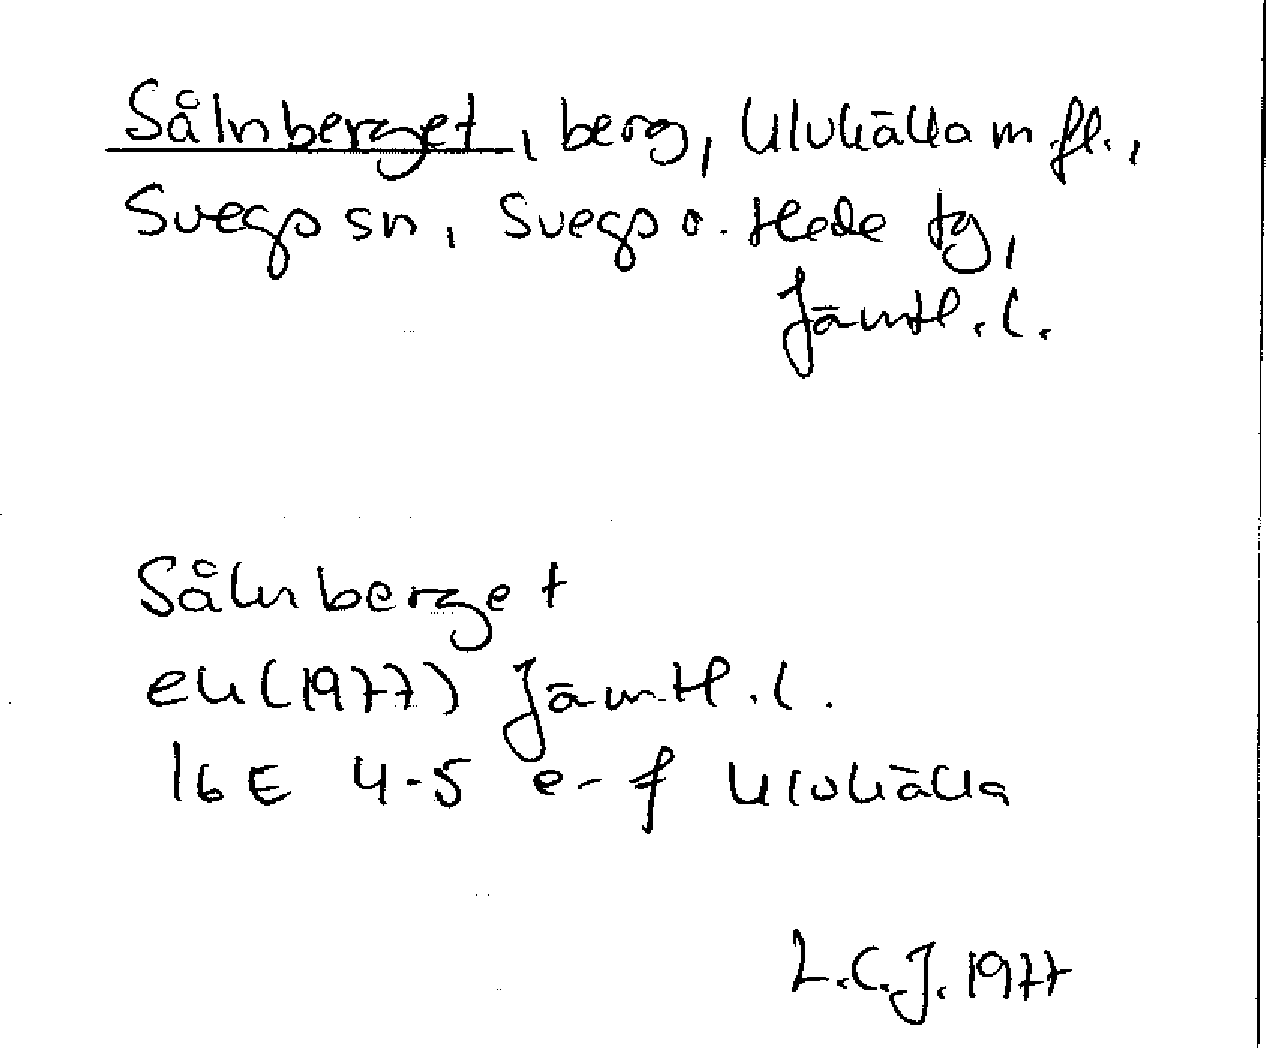 Sålnberget, berg, Ulvkälla m fl.,
Svegs sn, Svegs o. Hede tg,
Jämtl. l.
Sålnberget
ek (1977) Jämtl. l.
16E 4-5 e-f Ulvkälla
L.C.J. 1977